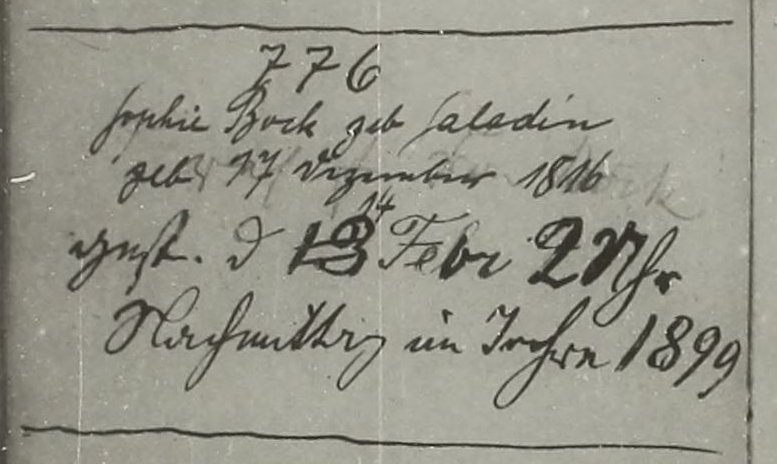 776
Sophie Bock geb Saladin
geb 17 Dezember 1816
gest. d 13 14 Febr 2 Uhr
Nachmittag im Jahre 1899